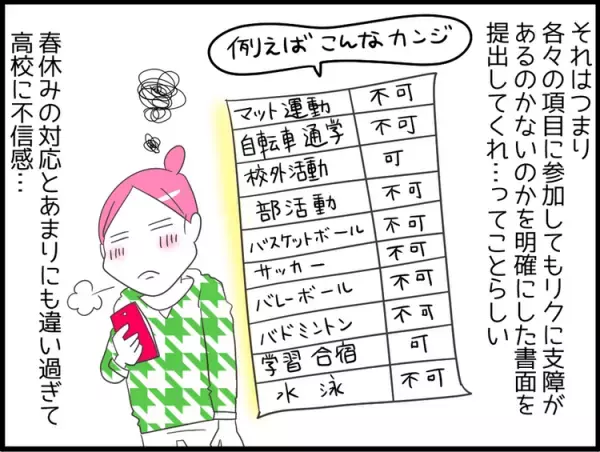 それはつまり
各々の項目に参加してもリクに支障が
あるのかないのかを明確にした書面を
提出してくれ…ってことらしい
例えば こんなカンジ
マット運動 不可
自転車通学 不可
校外活動 可
部活動 不可
バスケットボール 不可
サッカー 不可
バレーボール 不可
バドミントン 不可
学習合宿 可
水泳 不可
春休みの対応とあまりにも違い過ぎて
高校に不信感…